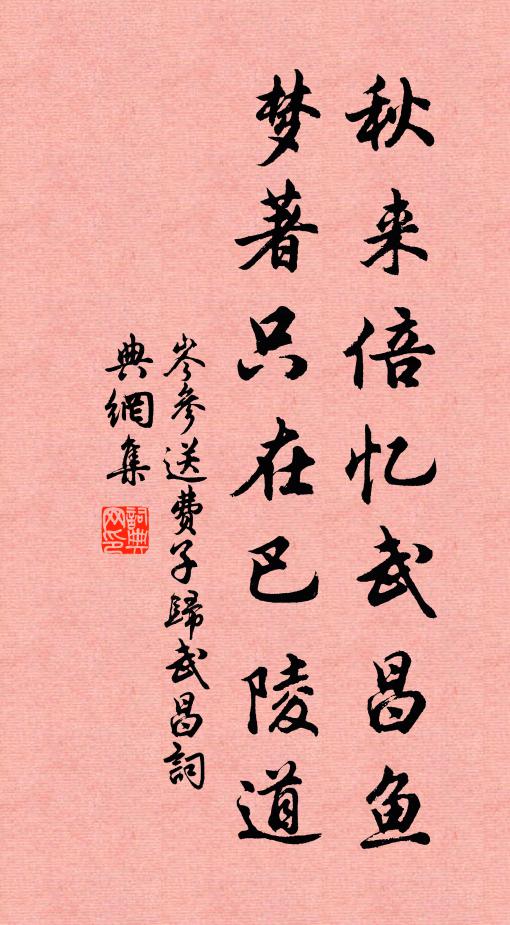 秋来倍忆武昌鱼
梦著只在巴陵道
岑参送費子歸武昌詞
典網集
詞典
网印